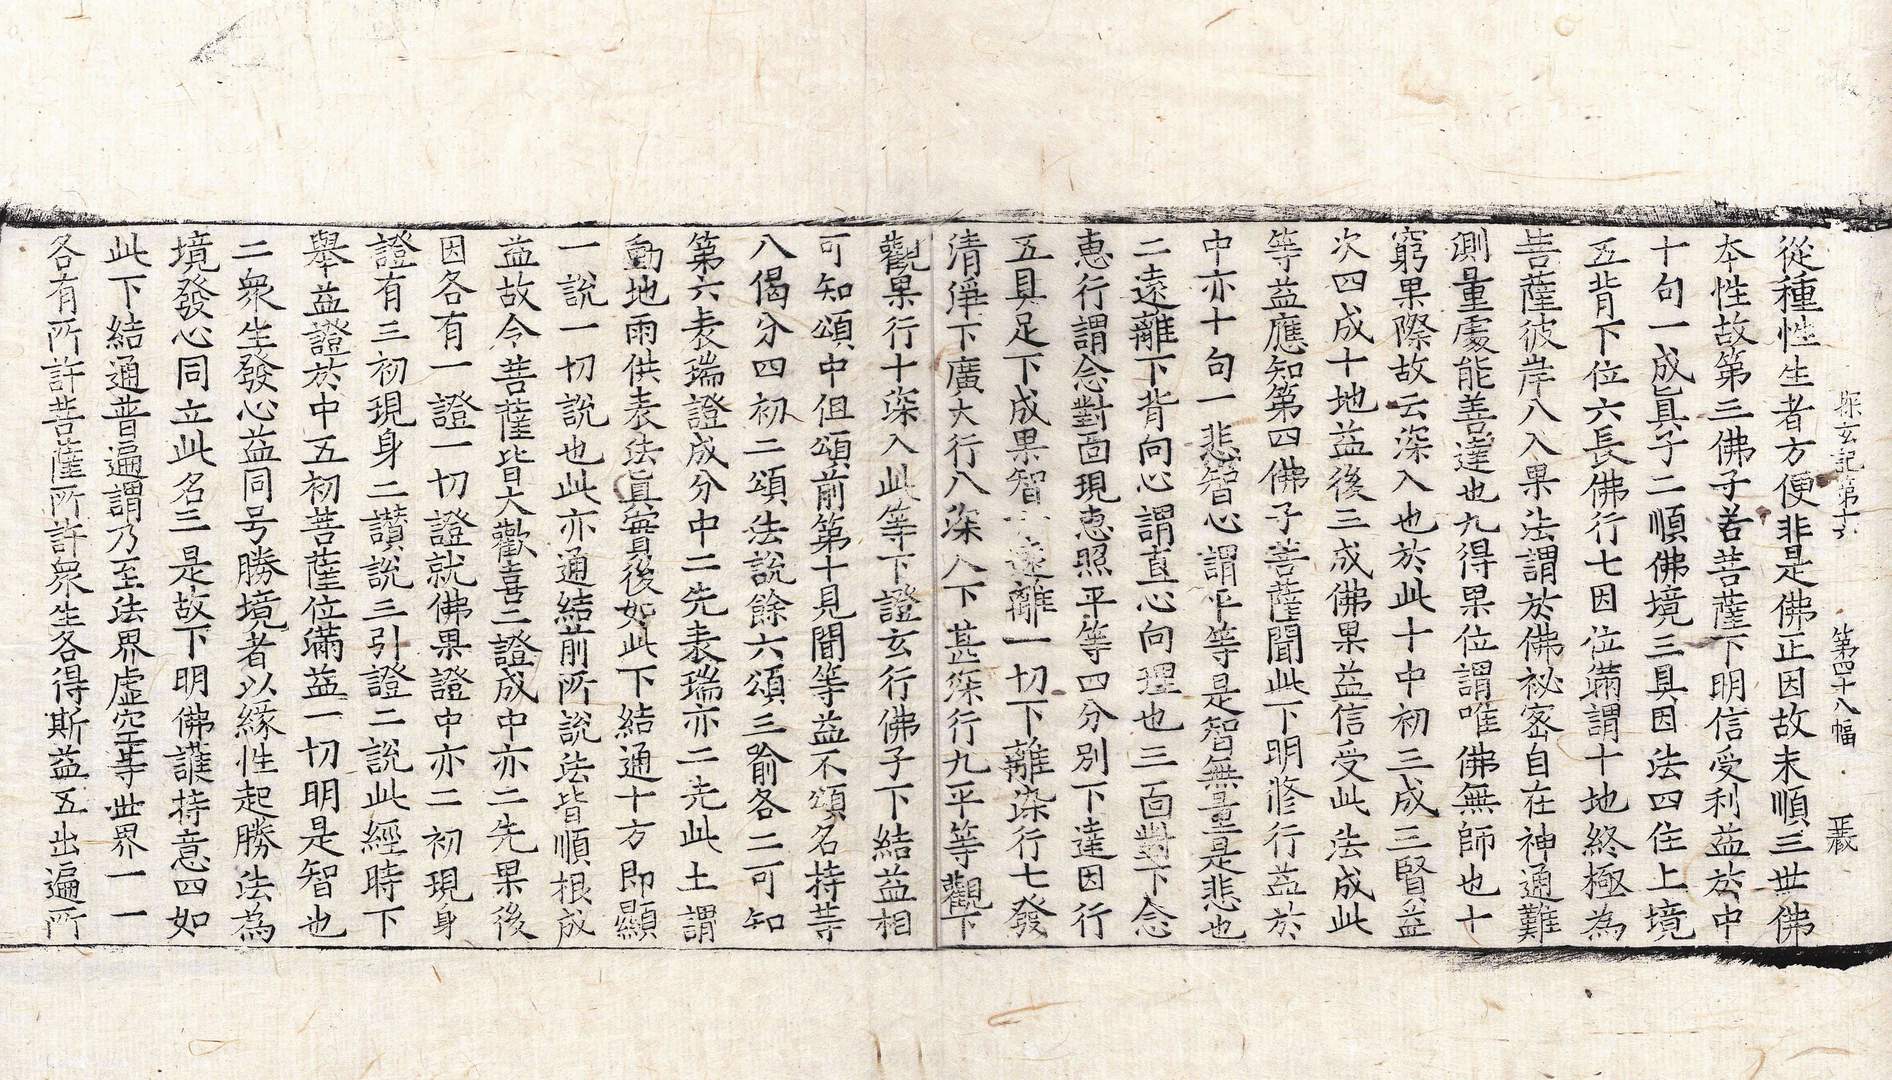 探玄記第十六 第四十八幅 𠭊
從種性生者方便非是佛正因故未順三世佛
本性故第三佛子若菩薩下明信受利益於中
十句一成真子二順佛境三具因法四住上境
五背下位六長佛行七因位滿謂十地終極為
菩薩彼岸八入果法謂於佛祕密自在神通難
測量處能善達也九得果位謂唯佛無師也十
窮果際故云深入也於此十中初三成三賢益
次四成十地益後三成佛果益信受此法成此
等益應知第四佛子菩薩聞此下明修行益於
中亦十句一悲智心謂平等是智無量是悲也
二遠離下背向心謂直心向理也三面對下念
惠行謂念對面現惠照平等四分別下達因行
五具足下成果智六遠離一切下離染行七發
清淨下廣大行八深入下甚深行九平等觀下
觀果行十深入此等下證玄行佛子下結益相
可知頌中但頌前第十見聞等益不頌名持等
八偈分四初二頌法說餘六頌三喻各二可知
第六表瑞證成分中二先表瑞亦二先此土謂
動地雨供表法真實後如此下結通十方即顯
一說一切說也此亦通結前所說法皆順根成
益故令菩薩皆大歡喜二證成中亦二先果後
因各有一證一切證就佛果證中亦二初現身
證有三初現身二讚說三引證二說此經時下
舉益證於中五初菩薩位滿益一切明是智也
二衆生發心益同号勝境者以緣性起勝法為
境發心同立此名三是故下明佛護持意四如
此下結通普遍謂乃至法界虛空等世界一一
各有所許菩薩所許衆生各得斯益五出遍所